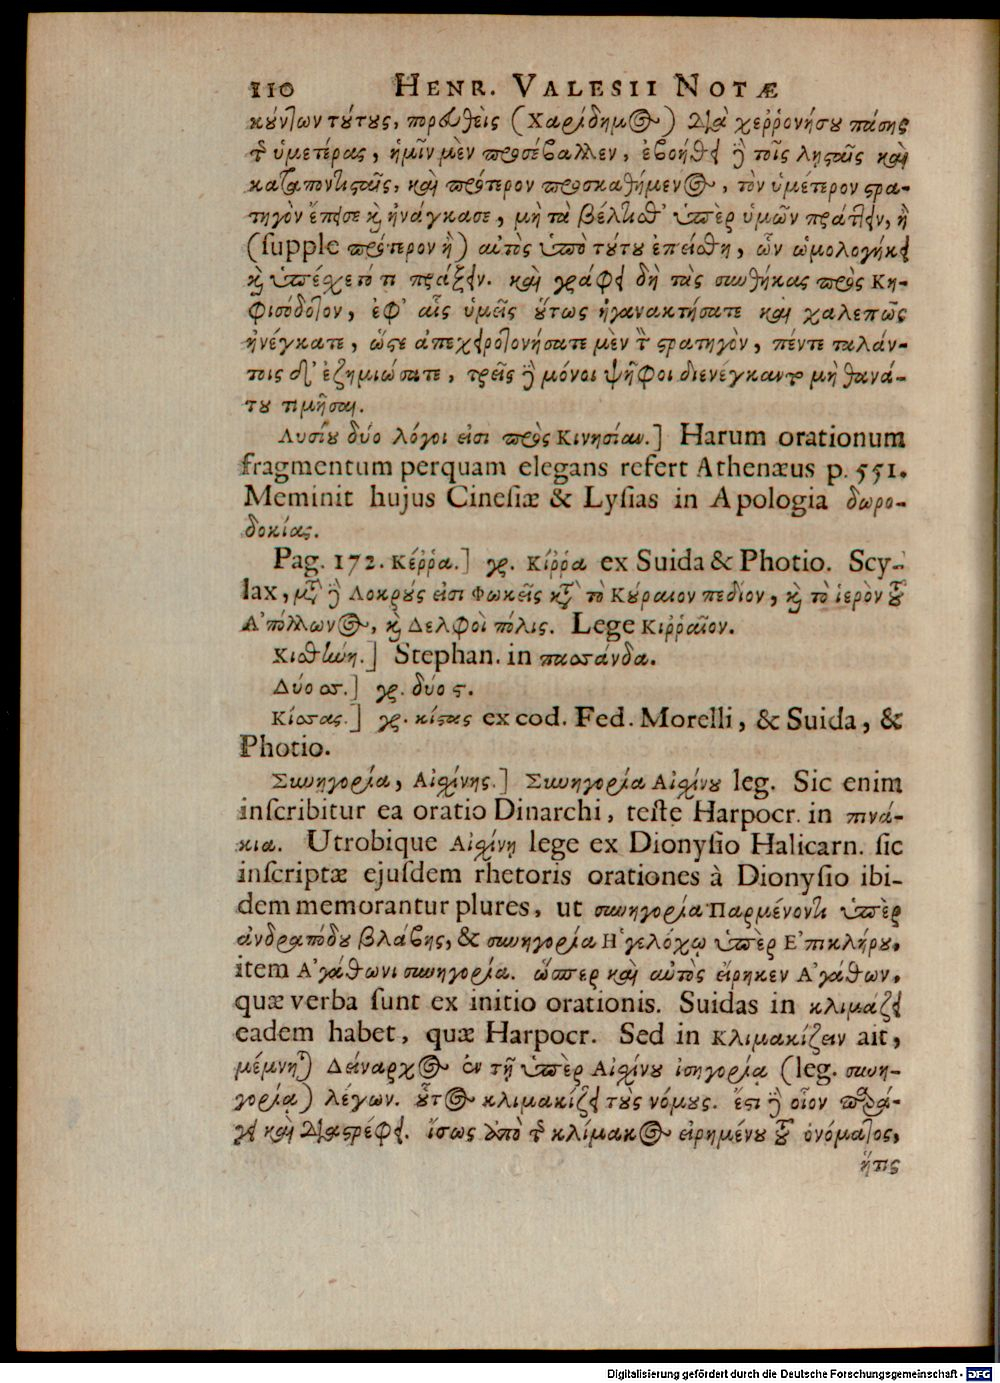 110 HENR. VALESII NOTÆ
κούντων τούτους, πορευθεὶς (Χαρίδημος) διὰ χεῤῥονήσου πάσης
τῆς ὑμετέρας, ἡμῖν μὲν προσέβαλλεν, ἐβοήθει δὲ τοῖς λῃσταῖς καὶ
καταποντισταῖς, καὶ πρότερον προσκαθήμενος, τὸν ὑμέτερον στρα-
τηγὸν ἔπεισε καὶ ἠνάγκασε, μὴ τὰ βέλτισθ' ὑπὲρ ὑμῶν πράττειν, ἢ
(ſupple πρότερον ἢ) αὐτὸς ὑπὸ τούτου ἐπείσθη, ὧν ὡμολογήκει
καὶ ὑπέσχετό τι πράξειν. καὶ γράφει δὴ τὰς συνθήκας πρὸς Κη-
φισόδοτον, ἐφ' αἷς ὑμεῖς οὕτως ἠγανακτήσατε καὶ χαλεπῶς
ἠνέγκατε, ὥστε ἀπεχειροτονήσατε μὲν τὸν στρατηγὸν, πέντε ταλάν-
τοις δ' ἐζημιώσατε, τρεῖς δὲ μόνοι ψῆφοι διένεγκαν τὸ μὴ θανά-
του τιμῆσαι.
Λυσίου δύο λόγοι εἰσὶ πρὸς Κινησίαν.] Harum orationum
fragmentum perquam elegans refert Athenæus p. 551.
Meminit hujus Cineſiæ & Lyſias in Apologia δωρο-
δοκίας.
Pag. 172. Κέῤῥα.] γρ. Κίῤῥα ex Suida & Photio. Scy-
lax, μετὰ δὲ Λοκρούς εἰσι Φωκεῖς κατὰ τὸ Κύραιον πεδίον, καὶ τὸ ἱερὸν τοῦ
Ἀπόλλωνος, καὶ Δελφοὶ πόλις. Lege Κιῤῥαῖον.
Κισθήνη.] Stephan. in πασσάνδα.
Δύο στ.] γρ. δύο ς.
Κίστας.] γρ. κίστας ex cod. Fed. Morelli, & Suida, &
Photio.
Συνηγορία, Αἰσχίνης.] Συνηγορία Αἰσχίνου leg. Sic enim
inſcribitur ea oratio Dinarchi, teſte Harpocr. in πινά-
κια. Utrobique Αἰσχίνῃ lege ex Dionyſio Halicarn. ſic
inſcriptæ ejuſdem rhetoris orationes à Dionyſio ibi-
dem memorantur plures, ut συνηγορία Παρμένοντι ὑπὲρ
ἀνδραπόδου βλάβης, & συνηγορία Ἡγελόχῳ ὑπὲρ Ἐπικλήρου,
item Ἀγάθωνι συνηγορία. ὥσπερ καὶ αὐτὸς εἴρηκεν Ἀγάθων,
quæ verba ſunt ex initio orationis. Suidas in κλιμάζει
eadem habet, quæ Harpocr. Sed in Κλιμακίζειν ait,
μέμνηται Δείναρχος ἐν τῇ ὑπὲρ Αἰσχίνου ἰσηγορίᾳ (leg. συνη-
γορίᾳ) λέγων. οὗτος κλιμακίζει τοὺς νόμους. ἔστι δὲ οἷον παρά-
γει καὶ διαστρέφει. ἴσως ἀπὸ τῆς κλίμακος εἰρημένου τοῦ ὀνόματος,
ἥτις
Digitalisierung gefördert durch die Deutsche Forschungsgemeinschaft - DFG